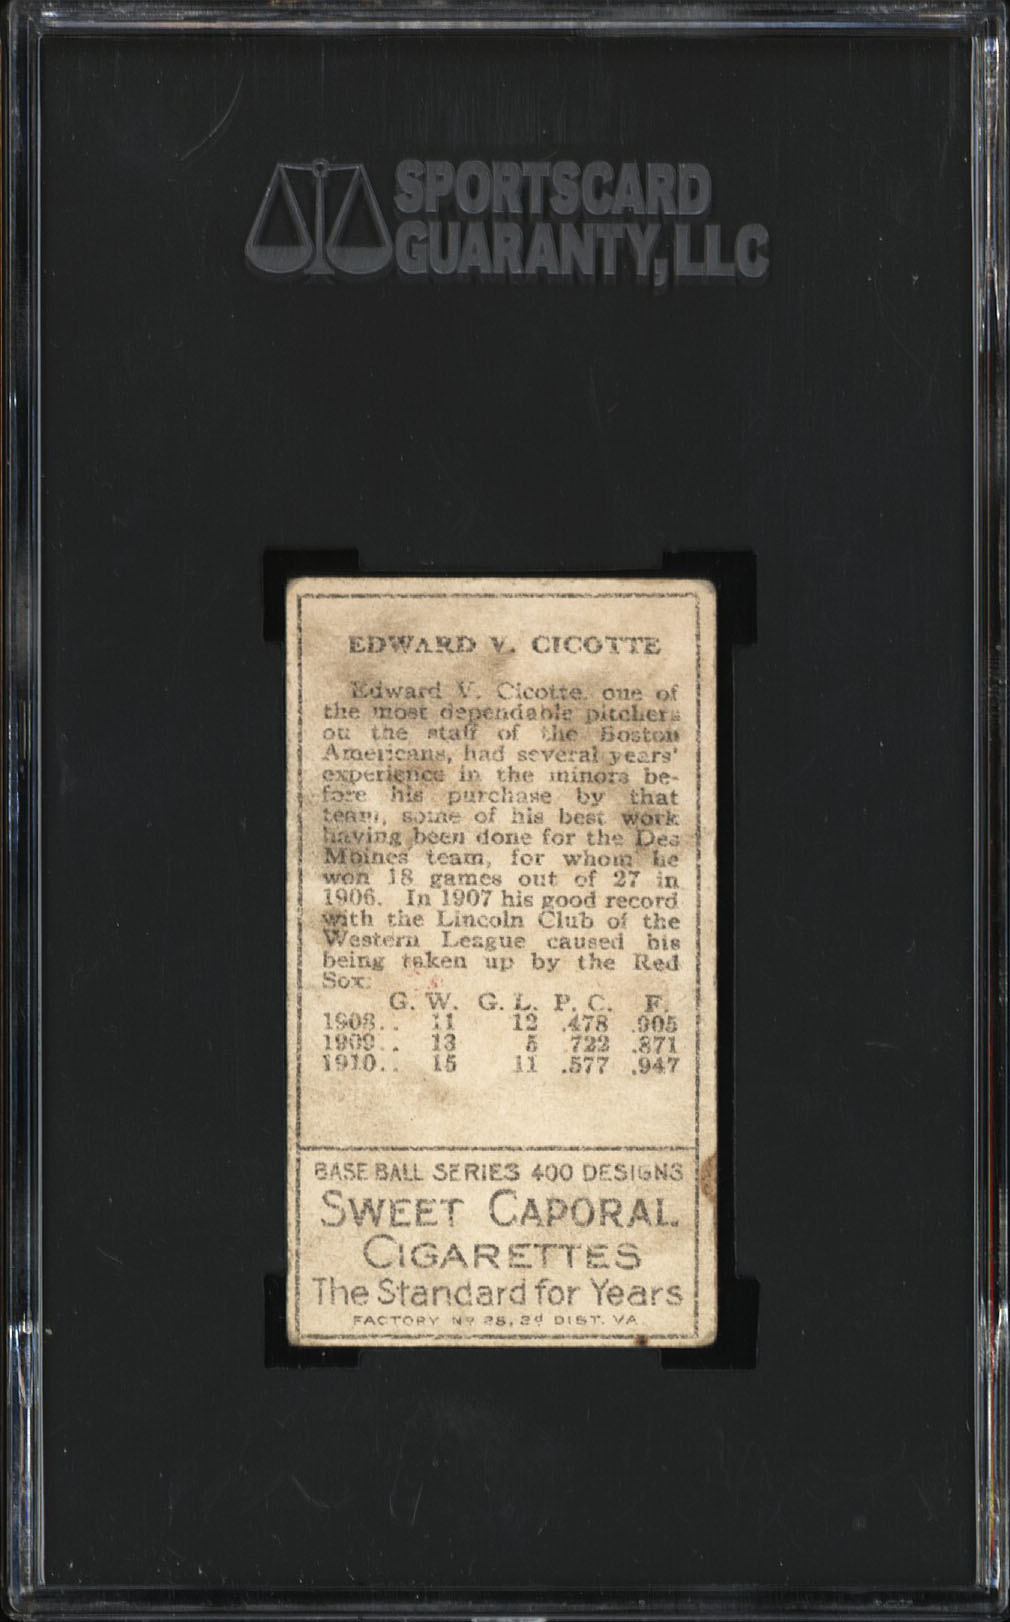 SPORTSCARD
GUARANTY, LLC
EDWARD V. CICOTTE
Edward V. Cicotte, one of
the most dependable pitchers
on the staff of the Boston
Americans, had several years'
experience in the minors be-
fore his purchase by that
team, some of his best work
having been done for the Des
Moines team, for whom he
won 18 games out of 27 in
1906. In 1907 his good record
with the Lincoln Club of the
Western League caused his
being taken up by the Red
Sox.
G. W. G. L. P. C. F.
1908.. 11 12 .478 .905
1909.. 13 5 .722 .871
1910.. 15 11 .577 .947
BASE BALL SERIES 400 DESIGNS
SWEET CAPORAL
CIGARETTES
The Standard for Years
FACTORY Nº 25, 2d DIST. VA.